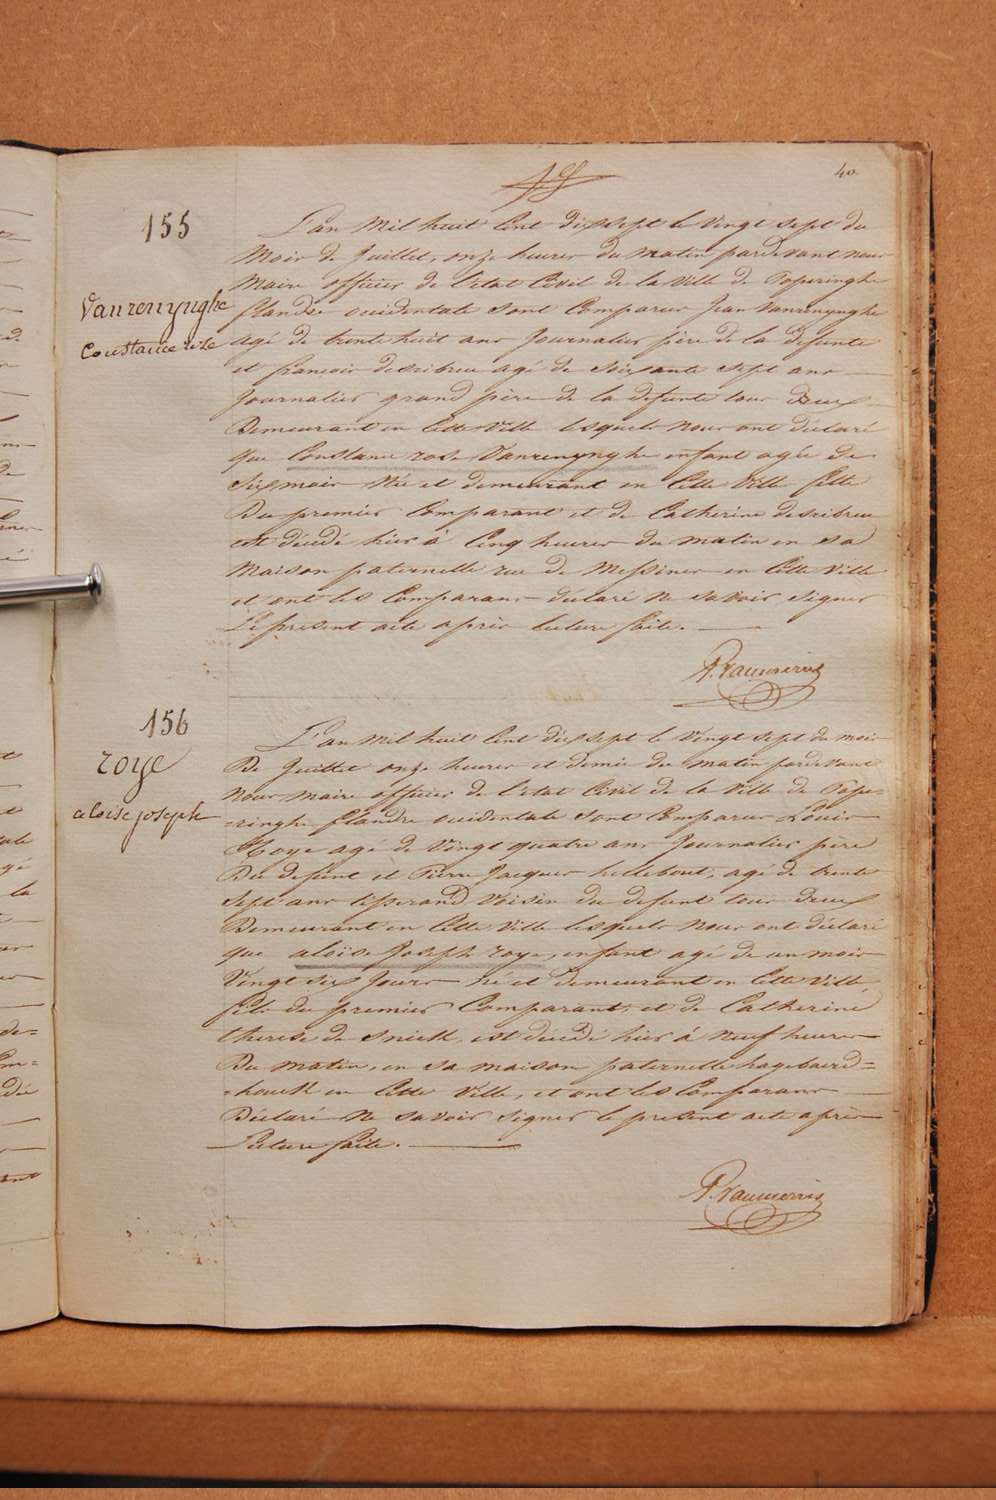 40
155
Vanrenynghe
Constance roze
L'an mil huit cent dixsept le vingt sept du
mois de Juillet, onze heures du matin pardevant nous
maire officier de l'etat Civil de la ville de Poperinghe
flandre occidentale sont Comparus Jean Vanrenynghe
agé de trente huit ans Journalier père de la defunte
et francois desribreu agé de soixante sept ans
Journalier grand père de la defunte tous deux
Demeurant en Cette Ville lesquels nous ont déclaré
que Constance rose Vanrenynghe enfant agée de
Six mois Née et demeurant en Cette Ville fille
Du premier Comparant et de Catherine desribreu
est décédé hier à Cinq heures du matin en sa
Maison paternelle rue de Messines en Cette Ville
et ont les Comparans déclaré ne savoir signer
Le present acte après lecture faite.
P. Vanmerris
156
roye
aloise joseph
L'an mil huit Cent dixsept le Vingt sept du mois
De Juillet onze heures et demie du matin pardevant
nous maire officier de l'etat Civil de la Ville de Pope=
=ringhe flandre occidentale sont Comparus Louis
Roye agé de Vingt quatre ans Journalier père
Du defunt et Pierre Jacques hellebout, agé de trente
Sept ans tisserand Voisin du defunt tous deux
Demeurant en Cette Ville lesquels nous ont déclaré
que aloïse Joseph roye, enfant agé de un mois
Vingt six Jours né et demeurant en Cette Ville,
fils du premier Comparant, et de Catherine
therese de Snick, est décédé hier à neuf heures
Du matin, en sa maison paternelle hagebaerd=
=houck en Cette Ville, et ont les Comparans
Déclaré ne savoir signer le present acte après
Lecture faite.
P. Vanmerris